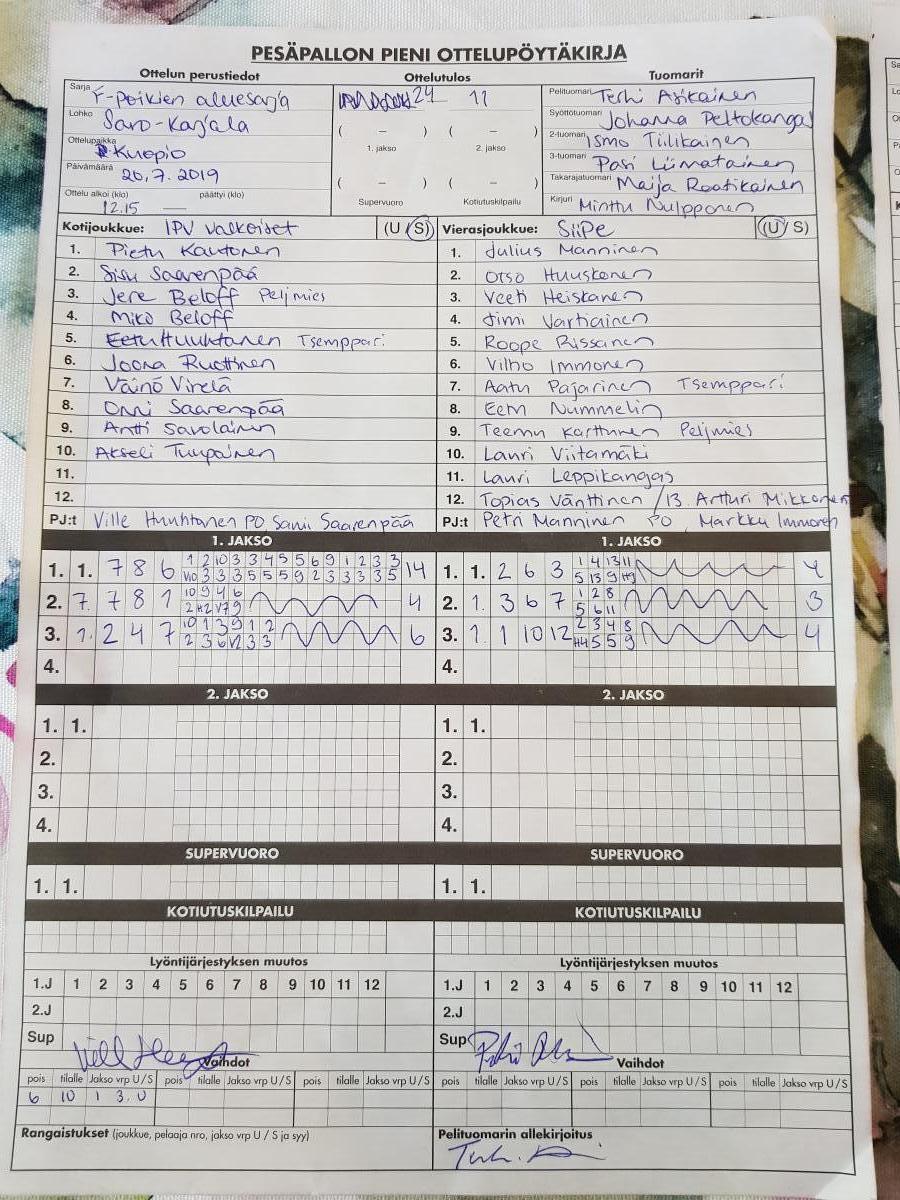 PESÄPALLON PIENI OTTELUPÖYTÄKIRJA
Ottelun perustiedot Ottelutulos Tuomarit
Sarja F-poikien aluesarja
Lohko Savo-Karjala
Ottelupaikka Kuopio
Päivämäärä 20.7.2019
Ottelu alkoi (klo) päättyi (klo)
12.15 —
24 11
( – ) ( – )
1. jakso 2. jakso
( – ) ( – )
Supervuoro Kotiutuskilpailu
Pelituomari Terhi Asikainen
Syöttötuomari Johanna Peltokangas
2-tuomari Ismo Tiilikainen
3-tuomari Pasi Liimatainen
Takarajatuomari Maija Raatikainen
Kirjuri Minttu Nulpponen
Kotijoukkue: IPV valkoiset (U / S)
1. Pietu Kautonen
2. Sisu Saarenpää
3. Jere Beloff Pelimies
4. Miko Beloff
5. Eetu Huuhtanen Tsemppari
6. Joona Ruottinen
7. Väinö Virelä
8. Onni Saarenpää
9. Antti Savolainen
10. Akseli Tuupainen
11.
12.
PJ:t Ville Huuhtanen PO Sami Saarenpää
Vierasjoukkue: SiiPe (U / S)
1. Julius Manninen
2. Otso Huuskonen
3. Veeti Heiskanen
4. Jimi Vartiainen
5. Roope Rissanen
6. Vilho Immonen
7. Aatu Pajarinen Tsemppari
8. Eetu Nummelin
9. Teemu Karttunen Pelimies
10. Lauri Viitamäki
11. Lauri Leppikangas
12. Topias Vänttinen / 13. Artturi Mikkonen
PJ:t Petri Manninen PO Markku Immonen
1. JAKSO
1. 1. 7 8 6 1 2 10 3 3 4 5 5 6 9 1 2 3 3 14
V10 3 3 3 5 5 5 9 2 3 3 3 3 5
2. 7. 7 8 1 10 9 4 6 4
2 H2 V7 9
3. 1. 2 4 7 10 1 3 9 1 2 6
2 3 6 V2 3 3
4.
1. JAKSO
1. 1. 2 6 3 1 4 13 11 4
5 13 9 H9
2. 1. 3 6 7 1 2 8 3
5 6 11
3. 1. 1 10 12 2 3 4 8 4
H4 5 5 9
4.
2. JAKSO
1. 1.
2.
3.
4.
2. JAKSO
1. 1.
2.
3.
4.
SUPERVUORO
1. 1.
SUPERVUORO
1. 1.
KOTIUTUSKILPAILU
KOTIUTUSKILPAILU
Lyöntijärjestyksen muutos
1.J 1 2 3 4 5 6 7 8 9 10 11 12
2.J
Sup
Lyöntijärjestyksen muutos
1.J 1 2 3 4 5 6 7 8 9 10 11 12
2.J
Sup
Vaihdot
pois tilalle Jakso vrp U / S pois tilalle Jakso vrp U / S pois tilalle Jakso vrp U / S
6 10 1 3. U
Vaihdot
pois tilalle Jakso vrp U / S pois tilalle Jakso vrp U / S pois tilalle Jakso vrp U / S
Rangaistukset (joukkue, pelaaja nro, jakso vrp U / S ja syy)
Pelituomarin allekirjoitus